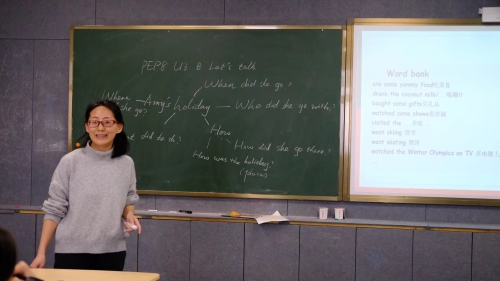 PEP8 U3 B Let's talk
When did she go?
Where
she go?
Amy's holiday
Who did she go with?
did she do?
How
How did she go there?
How was the holiday?
Word bank
ate some yummy food
drank the coconut milk
bought some gifts
watched some shows
visited the
went skiing
went skating
watched the Winter Olympics on TV